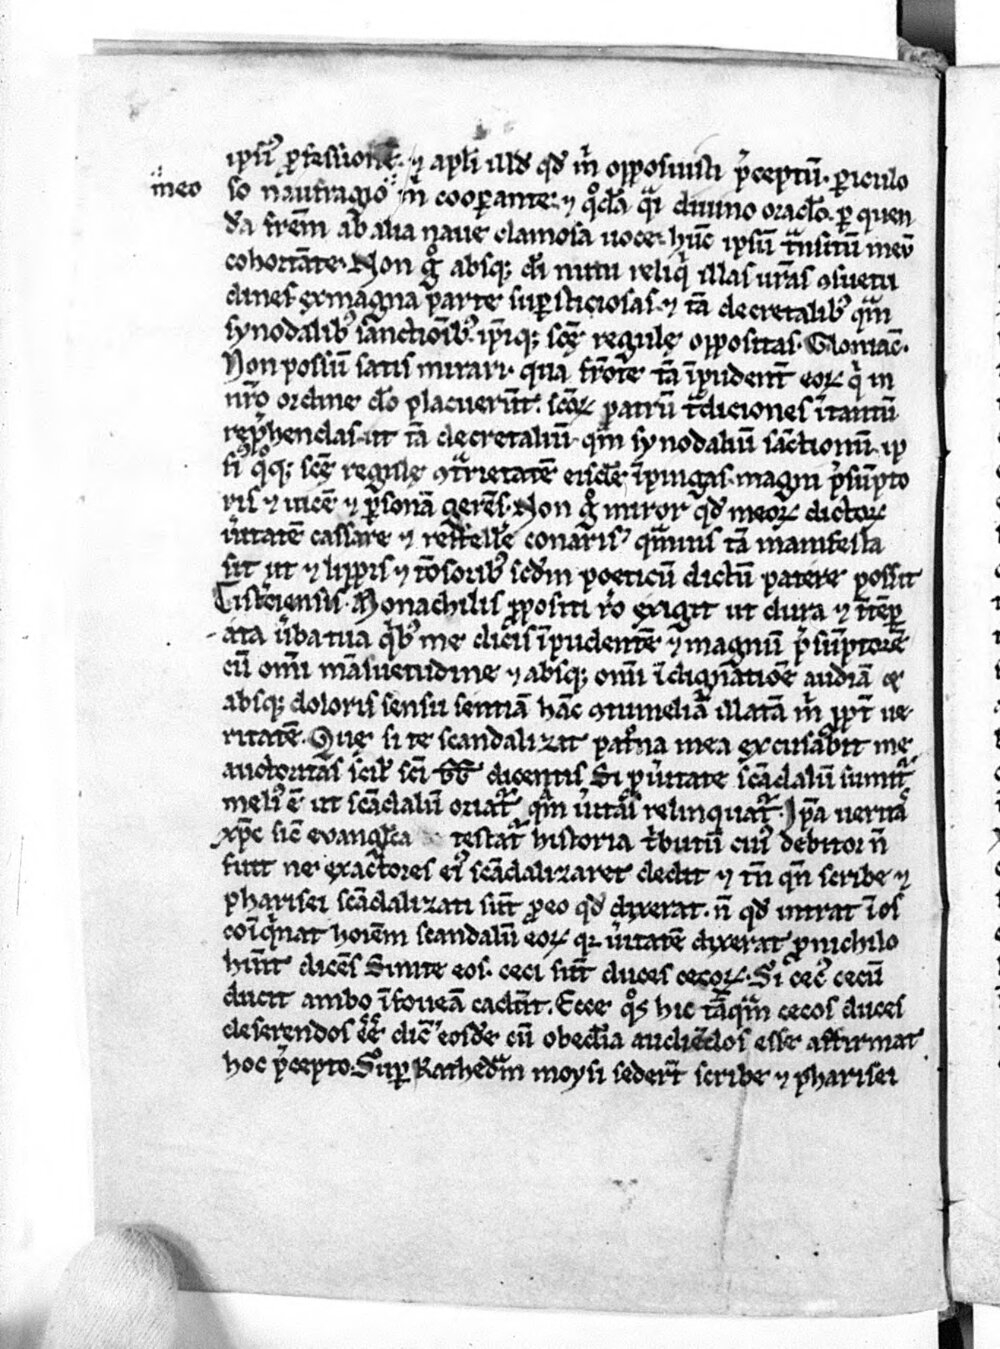 ipsiꝰ ꝓfessionē. ⁊ apl̄i illd̄ qd̄ m̄ opposuisti p̄ceptū. piculo
meo
so naufragio m̄ coopante. ⁊ qͦdā qͣi diuino oraclo. p quen
dā frēm ab alia naue clamosa uoce. hūc ipsū tͣnsitū meū
cohortāte. Non gͦ absq; di nutu reliq̇ illas urās ꝯsuetu
dines ex magna parte supsticiosas. ⁊ tā decretalibꝰ qͣm
synodalibꝰ sanctionibꝰ. ipiq; scę regulę oppositas. Cloniac̄.
Non possū satis mirari. qua fronte tā īpudent̄ eoꝝ q̇ in
nr̄o ordine do placuerūt. scōꝝ patrū tͣdiciones ītantū
rep̄hendas. ut tā decretaliū. qͣm synodaliū sāctionū. ip
si qͦq; scę regulę ꝯtrietatē eisdē īpingas. magni p̄sūpto
ris ⁊ uicē ⁊ psonā gerēs. Non gͦ miror qd̄ meoꝝ dictoꝝ
ůitatē cassare ⁊ refellē conaris. qͣmuis tā manifesta
sit ut ⁊ lippis ⁊ tōsoribꝰ scdm poeticū dictū patere possit
Cistrciensis. Monachilis ꝓpositi ro exigit ut dura ⁊ ītēp
ata ůba tua q̇bꝰ me dicis īpudentē ⁊ magnū p̄sūptorē
cū omī māsuetudine ⁊ absq; omī idignatiōe audiā ⁊
absq; doloris sensu sentiā hāc ꝯtumeliā illatā m̄ ꝓpt̄ ue
ritatē. Quę si te scandalizat patͥna mea excusabit me
auctoritas scil̄ sci bb̄ dicentis. Si p ůitate scādalū sumit̄
meliꝰ ē ut scādalū oriat̄ qͣm ůitas relinquat̄. Ipā ueritas
xpc̄ sic̄ evanglica testat̄ historia tͥbutū cuiꝰ debitor n̄
fuit ne exactores eiꝰ scādalizaret dedit ⁊ tn̄ qn̄ scribe ⁊
pharisei scādalizati sūt ꝓ eo qd̄ dixerat. n̄ qd̄ intrat ī os
coīq̇nat hoiem scandalū eoꝝ qꝛ ůitatē dixerat ꝓ nichilo
hūit dicēs Sinite eos. ceci sūt duces cecoꝝ. Si cecꝰ cecū
ducit ambo ī foueā cadūt. Ecce qͦs hic tāqͣm cecos duces
deserendos ēē dic̄ eosdē cū obediā audiēdos esse affirmat
hoc p̄cepto. Sup kathedrā moysi sederūt scribe ⁊ pharisei